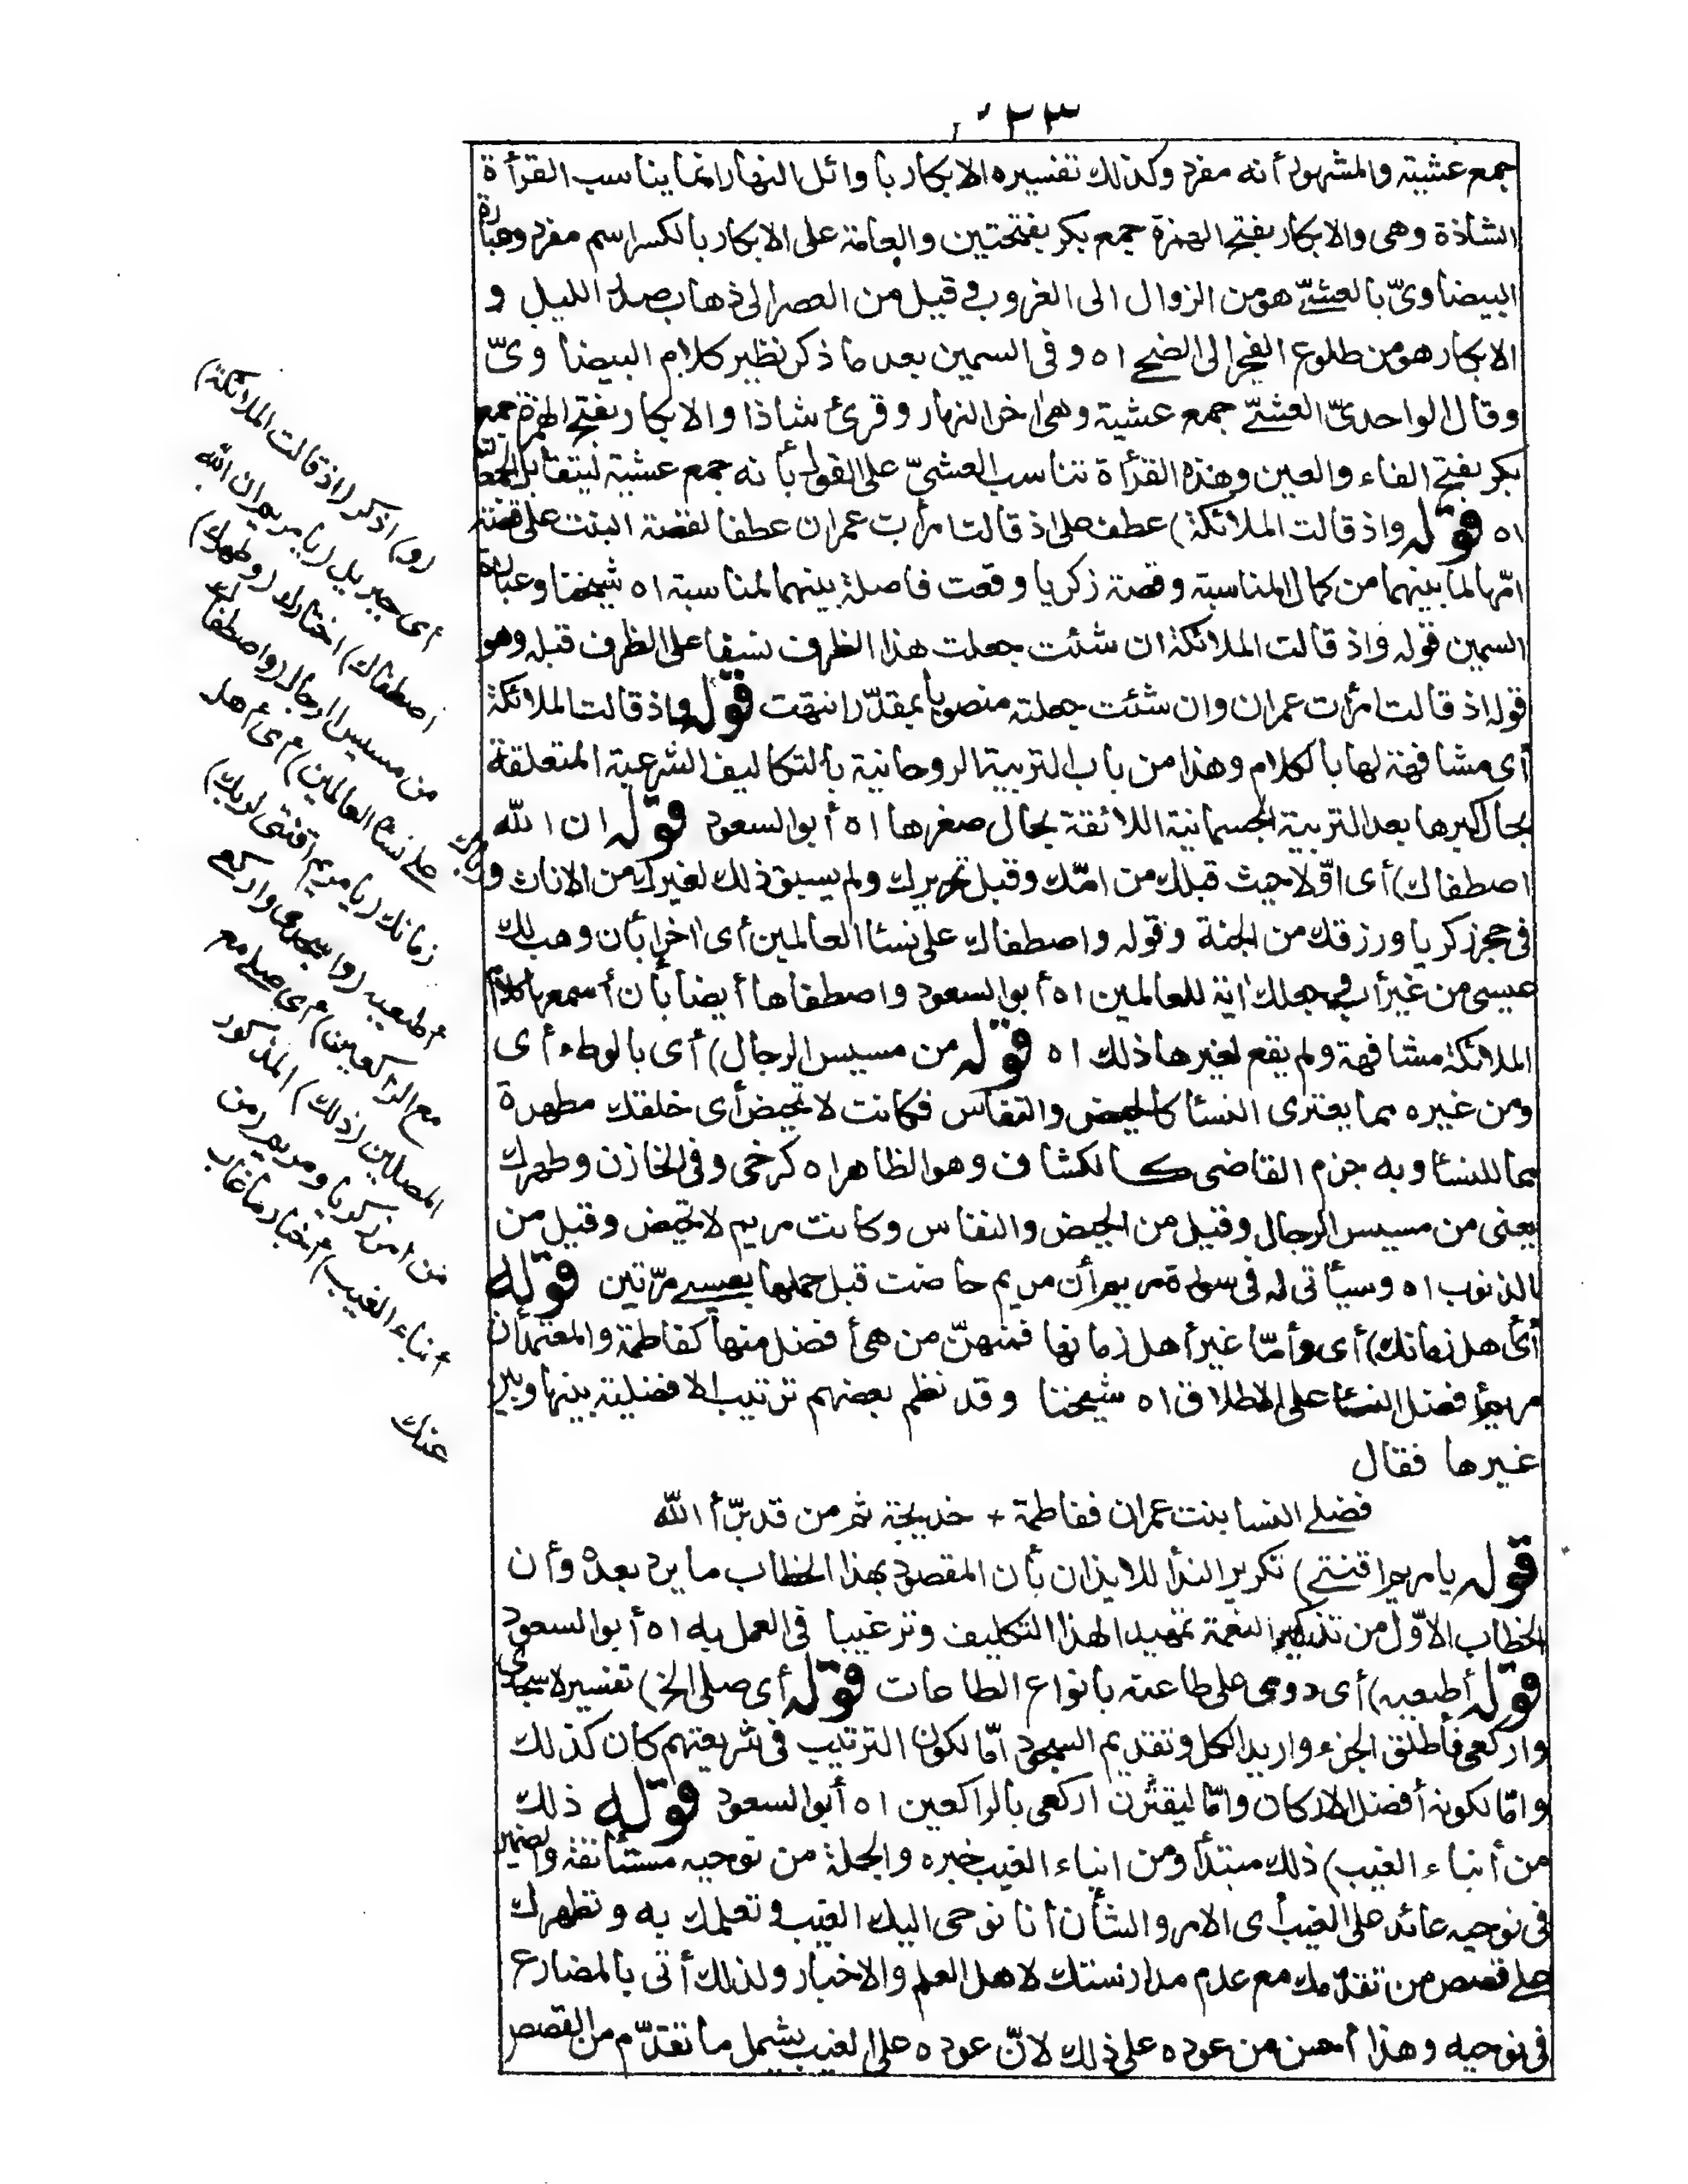 ٣٣٠
جمع عشية والمشهور أنه مفرد وكذلك تفسيره الابكار بأوائل النهار انما يناسب القرأة
الشاذة وهى والابكار بفتح الهمزة جمع بكر بفتحتين والعامة على الابكار بالكسر اسم مفرد وعبارة
البيضاوىّ بالعشىّ هو من الزوال الى الغروب وقيل من العصر الى ذهاب صدر الليل و
الابكار هو من طلوع الفجر الى الضحى اه وفى السمين بعد ما ذكر نظير كلام البيضاوىّ
وقال الواحدىّ العشىّ جمع عشية وهى اخر النهار وقرئ شاذا والابكار بفتح الهمزة جمع
بكر بفتح الفاء والعين وهذه القرأة تناسب العشىّ على القول بأنه جمع عشية ليتقابل الجمعان
اه قوله واذ قالت الملائكة) عطف على اذ قالت امرأت عمران عطفا لقصة البنت على قصة
امّها لما بينهما من كمال المناسبة وقصة زكريا وقعت فاصلة بينهما لمناسبة اه شيخنا وعبارة
السمين قوله واذ قالت الملائكة ان شئت جعلت هذا الظرف نسقا على الظرف قبله وهو
قوله اذ قالت امرأت عمران وان شئت جعلته منصوبا بمقدّر انتهت قوله واذ قالت الملائكة
أى مشافهة لها بالكلام وهذا من باب التربية الروحانية بالتكاليف الشرعية المتعلقة
بحال كبرها بعد التربية الجسمانية اللائقة بحال صغرها اه أبو السعود قوله ان الله
اصطفاك) أى اوّلا حيث قبلك من امّك وقبل تحريرك ولم يسبق ذلك لغيرك من الاناث ورباك
فى حجر زكريا ورزقك من الجنة وقوله واصطفاك على نسا العالمين أى اخرا بأن وهب لك
عيسى من غير أب وجعلك اية للعالمين اه أبو السعود واصطفاها أيضا بأن أسمعها كلام
الملائكة مشافهة ولم يقع لغيرها ذلك اه قوله من مسيس الرجال) أى بالوطء أى
ومن غيره مما يعترى النسا كالحيض والنفاس فكانت لا تحيض أى خلقك مطهرة
مما للنسا وبه جزم القاضى كالكشاف وهو الظاهر اه كرخى وفى الخازن وطهرك
يعنى من مسيس الرجال وقيل من الحيض والنفاس وكانت مريم لا تحيض وقيل من
الذنوب اه وسيأتى له فى سورة مريم أن مريم حاضت قبل حملها بعيسى مرّتين قوله
أى أهل زمانك) أى وأمّا غير أهل زمانها فمنهنّ من هى أفضل منها كفاطمة والمعتمد أن
مريم أفضل النسا على الاطلاق اه شيخنا وقد نظم بعضهم ترتيب الافضلية بينها وبين
غيرها فقال
فضلى النسا بنت عمران ففاطمة + خديجة ثم من قد برّأ الله
قوله يا مريم اقنتى) تكرير الندأ للايذان بأن المقصود بهذا الخطاب ما يرد بعده وأن
الخطاب الاوّل من تذكير النعمة تمهيدا لهذا التكليف وترغيبا فى العمل به اه أبو السعود
قوله أطيعيه) أى دومى على طاعته بأنواع الطاعات قوله أى صلى الخ) تفسير لاسجدى
واركعى فأطلق الجزء واريد الكل وتقديم السجود امّا لكون الترتيب فى شريعتهم كان كذلك
وامّا لكونه أفضل الاركان وامّا ليقترن اركعى بالراكعين اه أبو السعود قوله ذلك
من أنباء الغيب) ذلك مبتدأ ومن انباء الغيب خبره والجملة من نوحيه مستأنفة والضمير
فى نوحيه عائد على الغيب أى الامر والشأن أنا نوحى اليك الغيب ونعلمك به ونظهرك
على قصص من تقدّمك مع عدم مدارستك لاهل العلم والاخبار ولذلك أتى بالمضارع
فى نوحيه وهذا أحسن من عوده على ذلك لانّ عوده على الغيب يشمل ما تقدّم من القصص
(و) اذكر (اذ قالت الملائكة)
أى جبريل (يا مريم ان الله
اصطفاك) اختارك (وطهرك)
من مسيس الرجال (واصطفاك
على نسا العالمين) أى أهل
زمانك (يا مريم اقنتى لربك)
أطيعيه (واسجدى واركعى
مع الراكعين) أى صلى مع
المصلين (ذلك) المذكور
من امر زكريا ومريم (من
أنباء الغيب) أخبار ما غاب
عنك